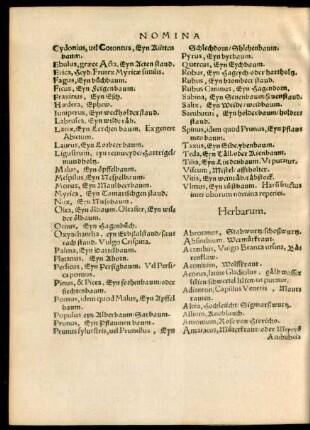 NOMINA
Cydonius, uel Cotoneus, Eyn Kütten
baum.
Ebulus, græce Acta, Eyn Acten staud.
Erica, Heyd. Frutex Myricæ similis.
Fagus, Eyn bůchbaum.
Ficus, Eyn Feigenbaum.
Fraxinus, Eyn Esch.
Hædera, Ephew.
Iuniperus, Eyn weckholderstaud.
Labrusca, Eyn wilde räb.
Larix, Eyn Lerchen baum. Ex genere
Abietum.
Laurus, Eyn Lorbeer baum.
Ligustrum, Eyn
mundholtz.
Malus, Eyn öpffelbaum.
Mespilus, Eyn Nespelbaum.
Morus, Eyn Maulbeerbaum.
Myrica, Eyn Tamarischgen staud.
Nux, Eyn Nussbaum.
Olea, Eyn ölbaum. Oleaster, Eyn wil
der ölbaum.
Ornus, Eyn
Oxyacantha, Eyn
rach staud. Vulgo Crispina.
Palma, Eyn Dattelbaum.
Platanus, Eyn Ahorn.
Persicus, Eyn Persigbaum. Vel Persi
capomus.
Pinus, & Picea, Eyn forhenbaum, oder
fiechtenbaum.
Pomus, idem quod Malus, Eyn Apffel
baum.
Populus, Eyn Alberbaum Sarbaum.
Prunus, Eyn Pflaumen baum.
Prunus sylvestris, uel Prunulus, Eyn
Schlechdorn/Schlehenbaum.
Pyrus, Eyn byrbaum.
Quercus, Eyn Eychbaum.
Rubus, Eyn brombeer staud.
Rubus Caninus, Eyn Hagendorn,
Sabina, Eyn Seuenbaum/seuerstaud.
Salix, Eyn Weide/weidbaum.
Sambucus, Eyn holder baum/holder
staud.
Spinus, idem quod Prunus, Eyn pflaus
men baum.
Taxus, Eyn Eibe/yben baum.
Teda, Eyn Täll/oder Kienbaum.
Tilia, Eyn Lindenbaum. Vt putatur.
Viscum, Mistel/affholter.
Vitis, Eyn weinräb/räbstock.
Vlmus, Eyn rüstbaum. Harū fructus
inter oborum nomina reperies.
Herbarum.
Abrotanus, Stabwurtz/schosswurtz.
Absinthium, Wermůt kraut.
Acanthus, Vulgo Branca ursina, Bä-
rentlaw.
Aconitum, Wolffkraut.
Acorus, siue Gladiolus,
lilien
Adianton, Capillus Veneris, Maur-
rauten.
Alcea, Sigmarswurtz.
Allium, Knoblauch.
Amomum, Rose von Jericho.
Amaracus, Můterkraut/ oder Meyer
Ambubeia